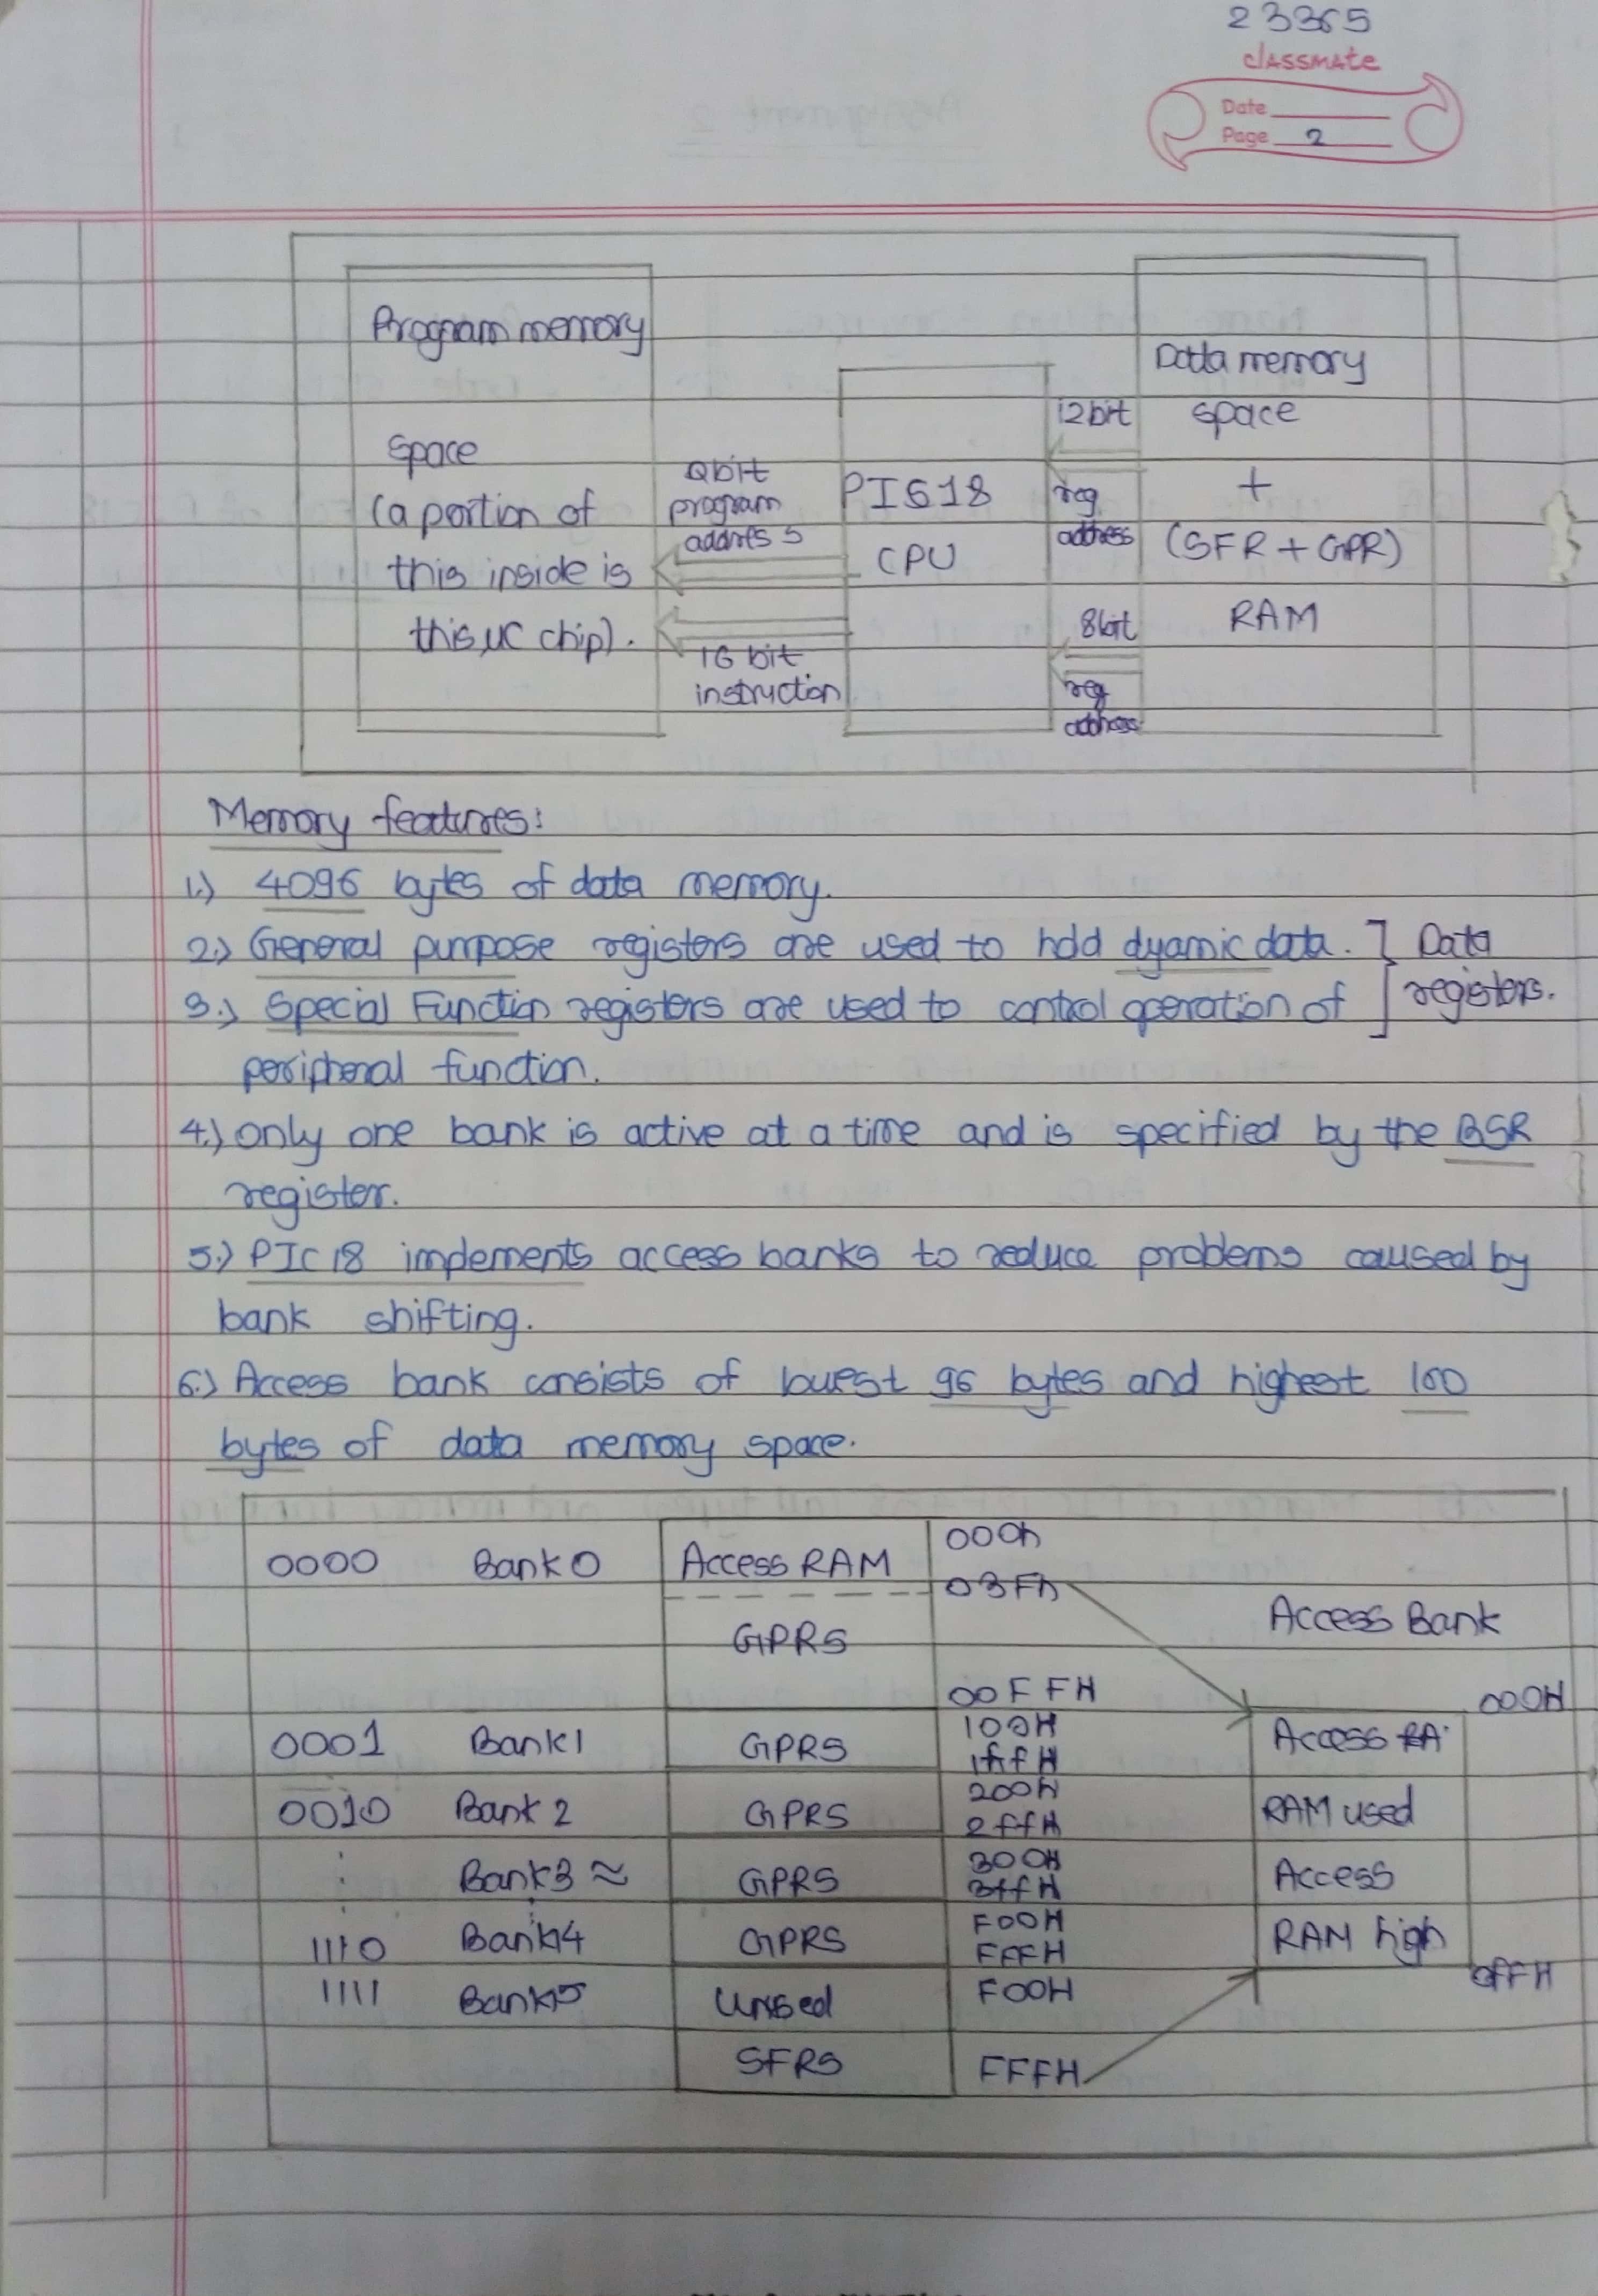 23365
classmate
Date
Page 2
Program memory
Space
(a portion of
this inside is
this uc chip).
Qbit
program
address
16 bit
instruction
PIC18
CPU
12bit
reg
address
8bit
reg
address
Data memory
space
+
(SFR + GPR)
RAM
Memory features:
1.) 4096 bytes of data memory.
2.) General purpose registers are used to hold dyamic data. ] Data
3.) Special Function registers are used to control operation of ] registers.
peripheral function.
4.) only one bank is active at a time and is specified by the BSR
register.
5.) PIC18 implements access banks to reduce problems caused by
bank shifting.
6.) Access bank consists of lowest 96 bytes and highest 160
bytes of data memory space.
0000 Bank 0 Access RAM 000h
03Fh
GPRS
00FFH
Access Bank
000H
0001 Bank1 GPRS 100H
1ffH
Access RA
0010 Bank 2 GPRS 200H
2ffH
RAM used
Bank3 ≈ GPRS 300H
3ffH
Access
1110 Bank14 GPRS F00H
FFFH
RAM high
0FFH
1111 Bank15 Unused F00H
SFRS FFFH